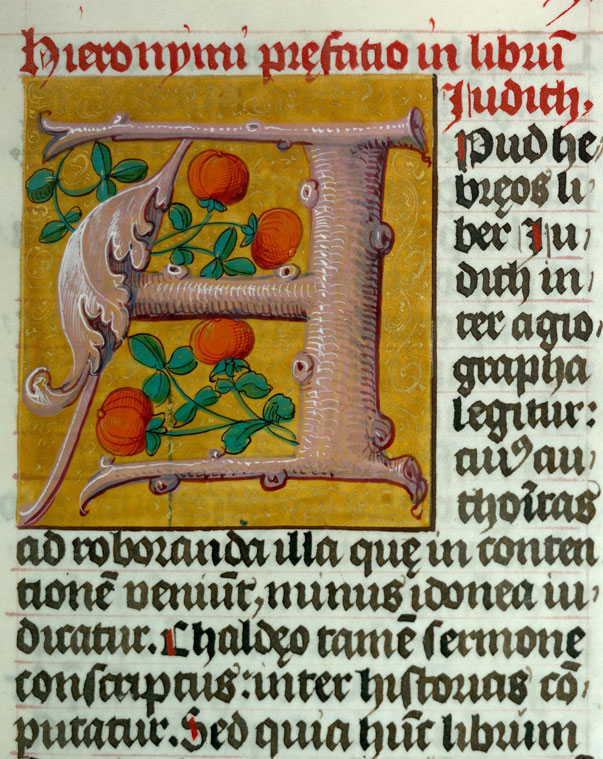 Hieronymi pręfatio in librū
Judith.
APud he,
bręos li,
ber Ju,
dith in,
ter agio,
grapha
legitur:
cui⁹ au,
thorītas
ad roboranda illa quę in conten
tionē veniūt, minus idonea iu,
dicatur. Chaldęo tamē sermone
conscriptus: inter historias cō,
putatur. Sed quia hūc librum